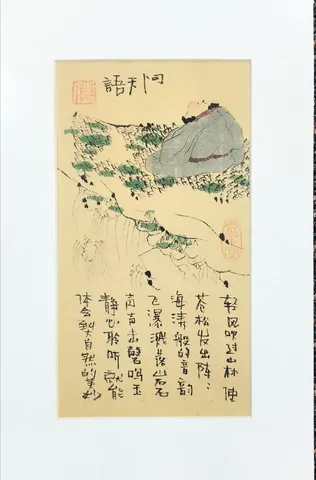 问天語
轻风吹过山林使
苍松发出阵：
海涛般的音韵
飞瀑溅落山石
击磬鸣玉
静心聆听就能
体会到大自然的美妙